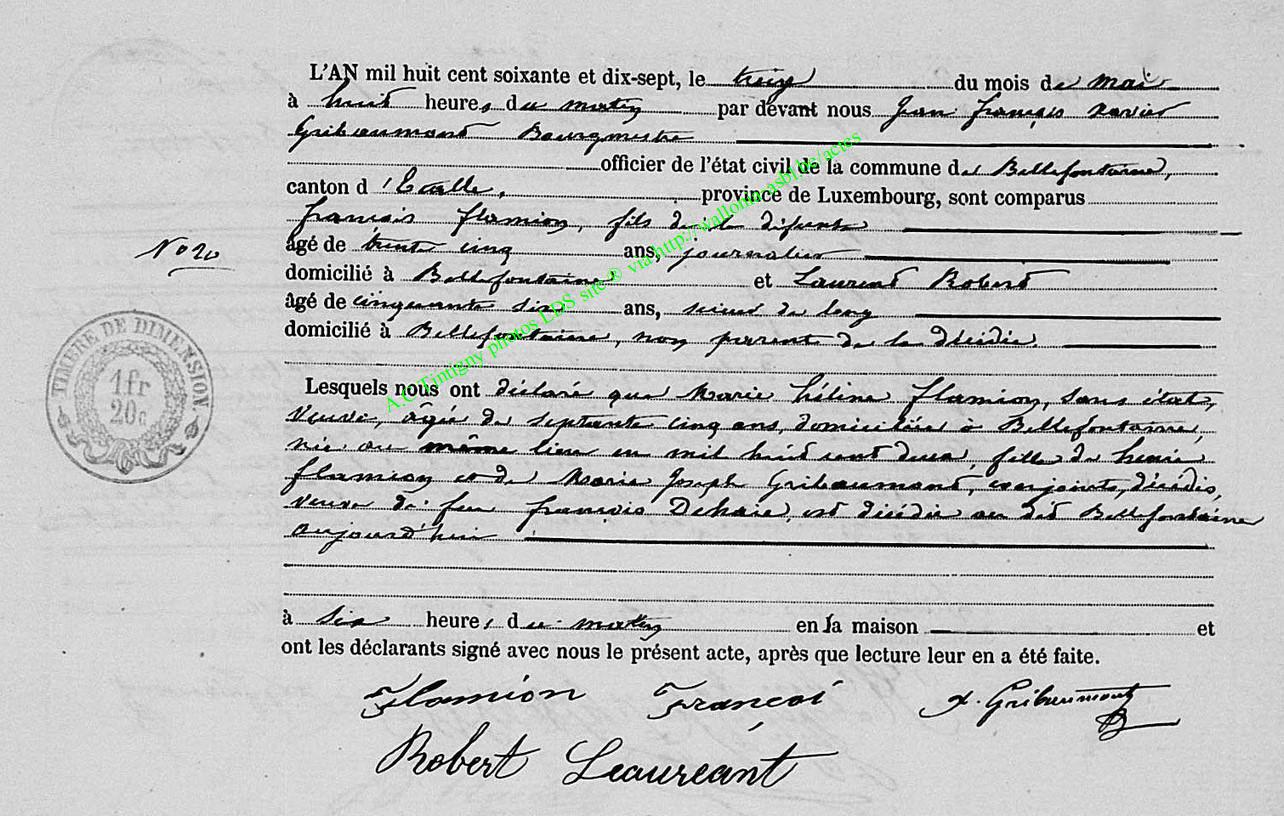 L'AN mil huit cent soixante et dix-sept, le treize du mois de mai
à huit heures du matin par devant nous Jean françois xavier
Gribaumont Bourgmestre
officier de l'état civil de la commune de Bellefontaine,
canton d'Etalle, province de Luxembourg, sont comparus
francois flamion, fils de la défunte
âgé de trente cinq ans, journalier
N° 20
domicilié à Bellefontaine et Laurent Robert
âgé de cinquante six ans, scieur de long
domicilié à Bellefontaine, non parent de la décédée.
TIMBRE DE DIMENSION.
1 fr
20 c
Lesquels nous ont déclaré que Marie hélène flamion, sans état,
veuve, âgée de septante cinq ans, domiciliée à Bellefontaine,
née au même lieu en mil huit cent deux, fille de henri
flamion et de Marie Joseph Gribaumont, conjoints, décédés,
veuve de feu françois Dehaie, est décédée au dit Bellefontaine
aujourd'hui
à six heures du matin en la maison et
ont les déclarants signé avec nous le présent acte, après que lecture leur en a été faite.
Flamion Françoi x. Gribaumont
Robert Leaureant
A.C Tintigny photos LDS site ® via http://wallonica.asbl.be/actes